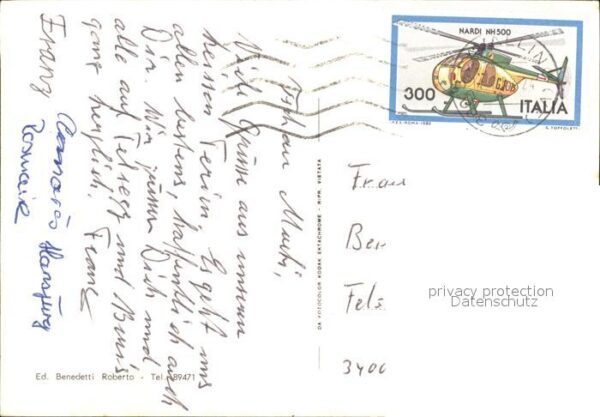 Viele Grüsse aus unserem
heissen Ferien. Es geht uns
allen bestens, hoffentlich auch
Dir. Wir grüssen Dich und
alle auf und
ganz herzlich. Franz
Franz
Rosmarie
NARDI NH500
300
ITALIA
I.P.Z.S. ROMA 1982
Frau
Ber
Fels
3400
privacy protection
Datenschutz
DA FOTOCOLOR KODAK EKTACHROME - RIPR. VIETATA
Ed. Benedetti Roberto - Tel. 89471